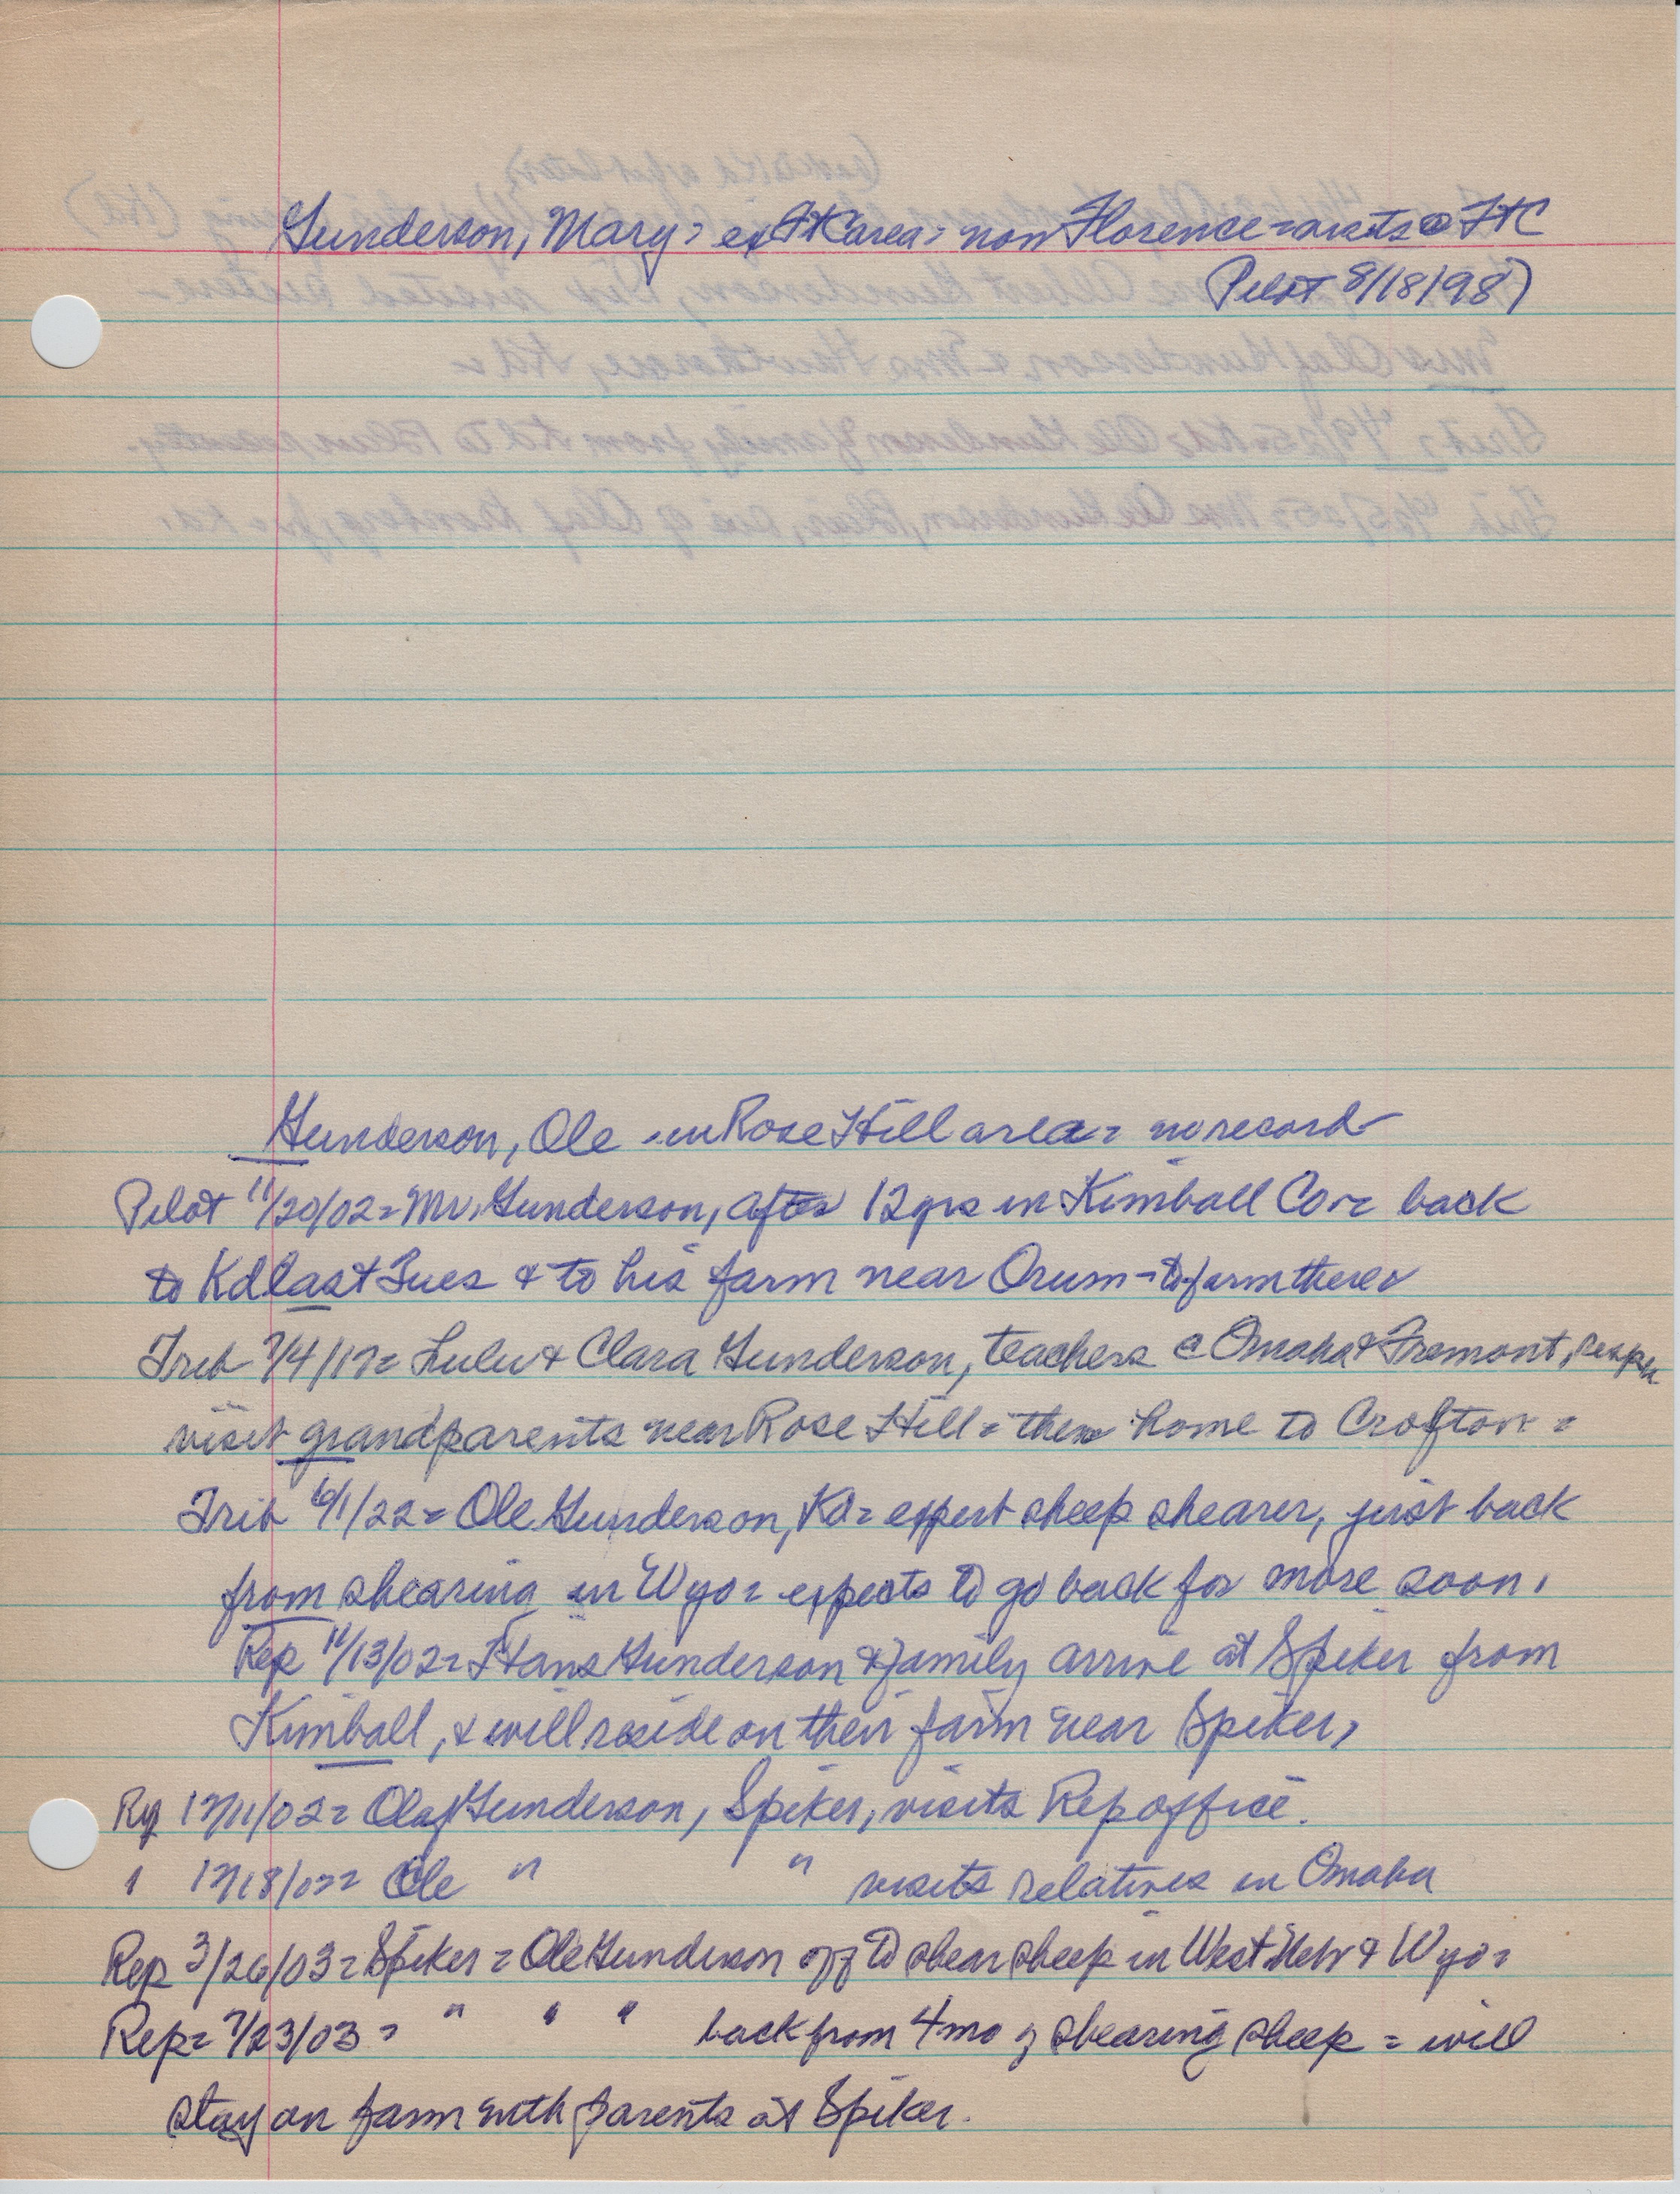 Gunderson, Mary = ex FtC area = now Florence = visits @ FtC
Pilot 8/18/98)
Gunderson, Ole - in Rose Hill area = no record
Pilot 11/20/02 = Mr. Gunderson, after 12 yrs in Kimball Co = back
to Kd last Tues & to his farm near Orum - to farm there
Trib 7/4/17 = Lulu & Clara Gunderson, teachers @ Omaha & Fremont,
visit grandparents near Rose Hill = then home to Crofton =
Trib 6/1/22 = Ole Gunderson, Kd = expert sheep shearer, just back
from shearing in Wyo = expects to go back for more soon.
Rep 11/13/02 = Hans Gunderson & family arrive at Spiker from
Kimball, & will reside on their farm near Spiker,
Rep 12/11/02 = Olaf Gunderson, Spiker, visits Rep office.
" 12/18/02 = Ole " " visits relatives in Omaha
Rep 3/26/03 = Spiker = Ole Gunderson off to shear sheep in West Neb & Wyo =
Rep = 7/23/03 = " " " back from 4 mo of shearing sheep = will
stay on farm with parents at Spiker.